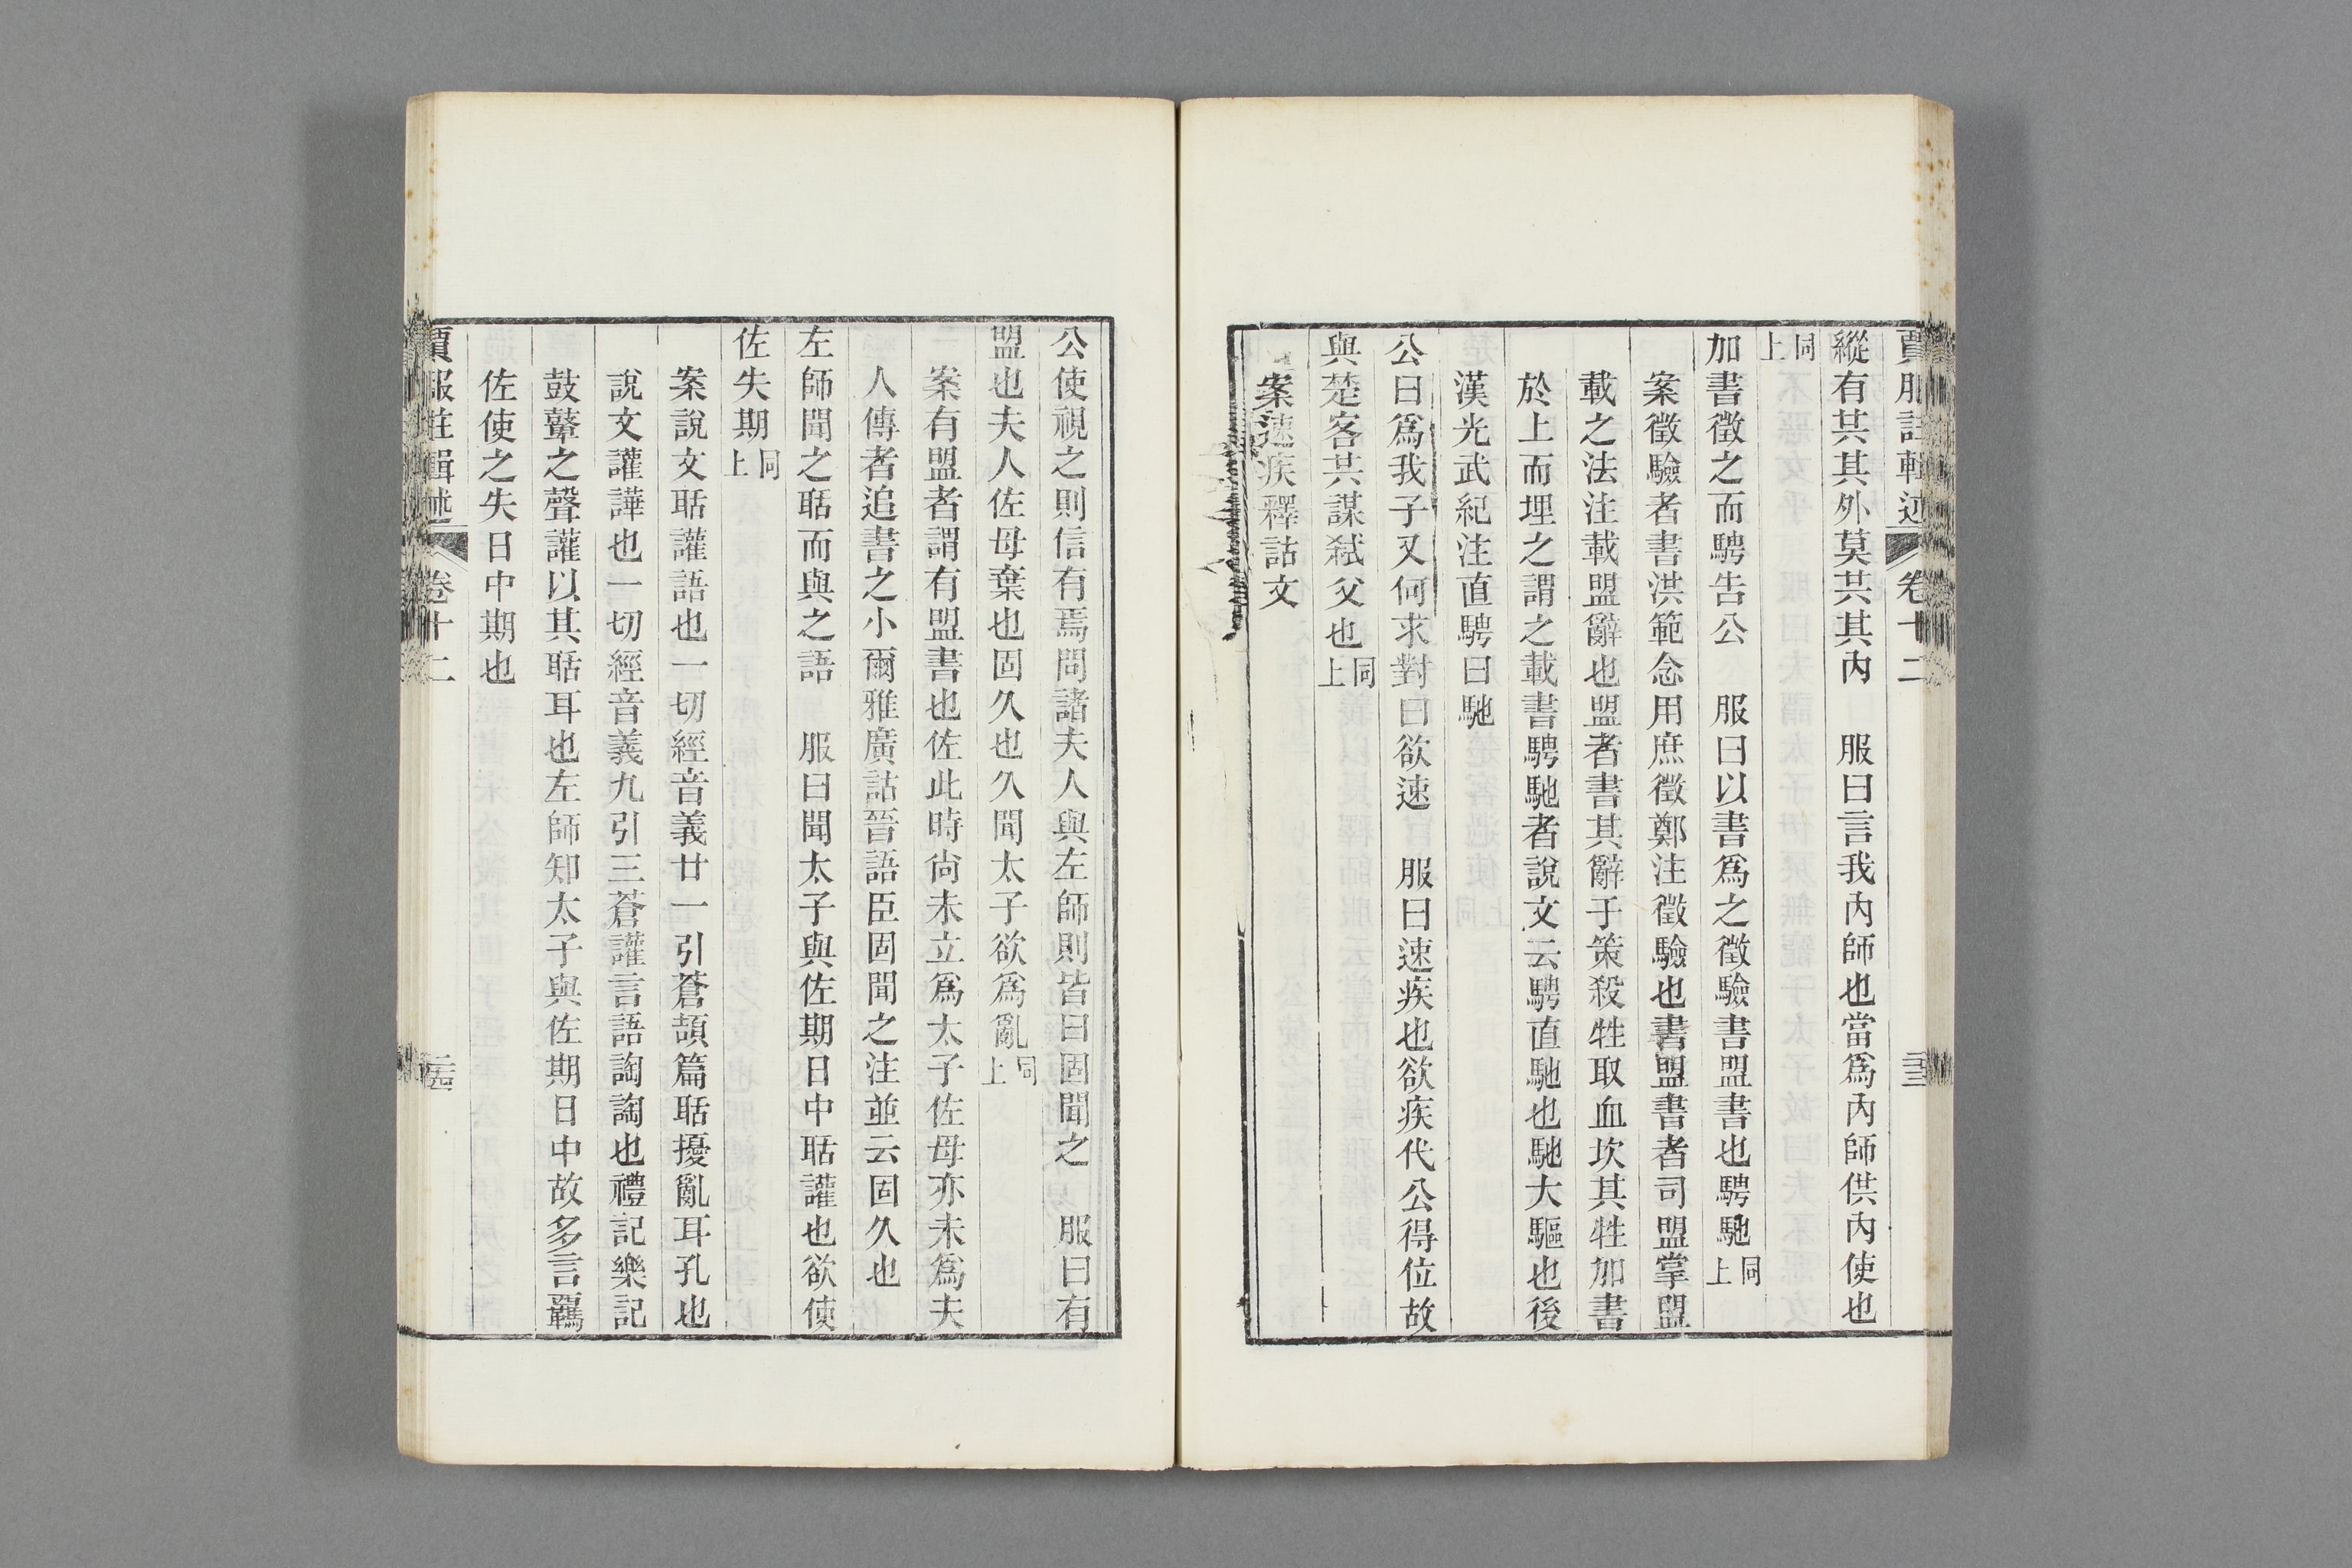 賈服註輯述 卷十二 二十三
縱有共其外莫共其內 服曰言我內師也當爲內師供內使也
同上
加書徵之而騁告公 服曰以書爲之徵驗書盟書也騁馳同上
案徵驗者書洪範念用庶徵鄭注徵驗也書盟書者司盟掌盟
載之法注載盟辭也盟者書其辭于策殺牲取血坎其牲加書
於上而埋之謂之載書騁馳者說文云騁直馳也馳大驅也後
漢光武紀注直騁曰馳
公曰爲我子又何求對曰欲速 服曰速疾也欲疾代公得位故
與楚客共謀弒父也同上
案速疾釋詁文
公使視之則信有焉問諸夫人與左師則皆曰固聞之 服曰有
盟也夫人佐母棄也固久也久聞太子欲爲亂同上
案有盟者謂有盟書也佐此時尚未立爲太子佐母亦未爲夫
人傳者追書之小爾雅廣詁晉語臣固聞之注並云固久也
左師聞之聒而與之語 服曰聞太子與佐期日中聒讙也欲使
佐失期同上
案說文聒讙語也一切經音義廿一引蒼頡篇聒擾亂耳孔也
說文讙譁也一切經音義九引三蒼讙言語詾詾也禮記樂記
鼓鼙之聲讙以其聒耳也左師知太子與佐期日中故多言羈
佐使之失日中期也
賈服註輯述 卷十二 二十四